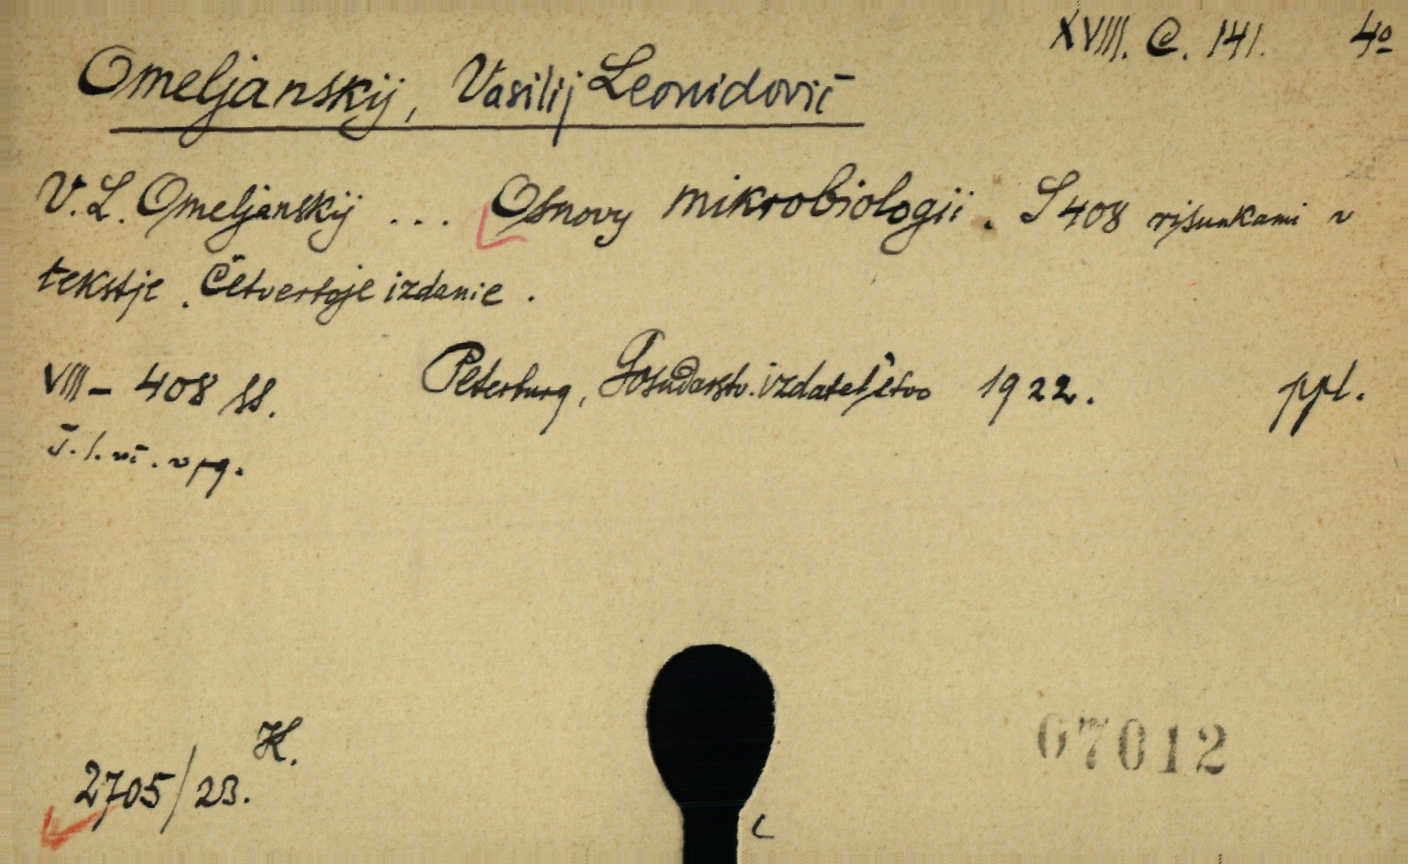 XVIII. C. 141. 4º
Omeljanskij, Vasilij Leonidovič
V. L. Omeljanskij ... Osnovy mikrobiologii. S 408 risunkami v
tekstje. Četvertoje izdanie.
VIII – 408 ss. Peterburg, Gosudarstv. izdatelstvo 1922. ppl.
v pg.
2705/23. K.
07012